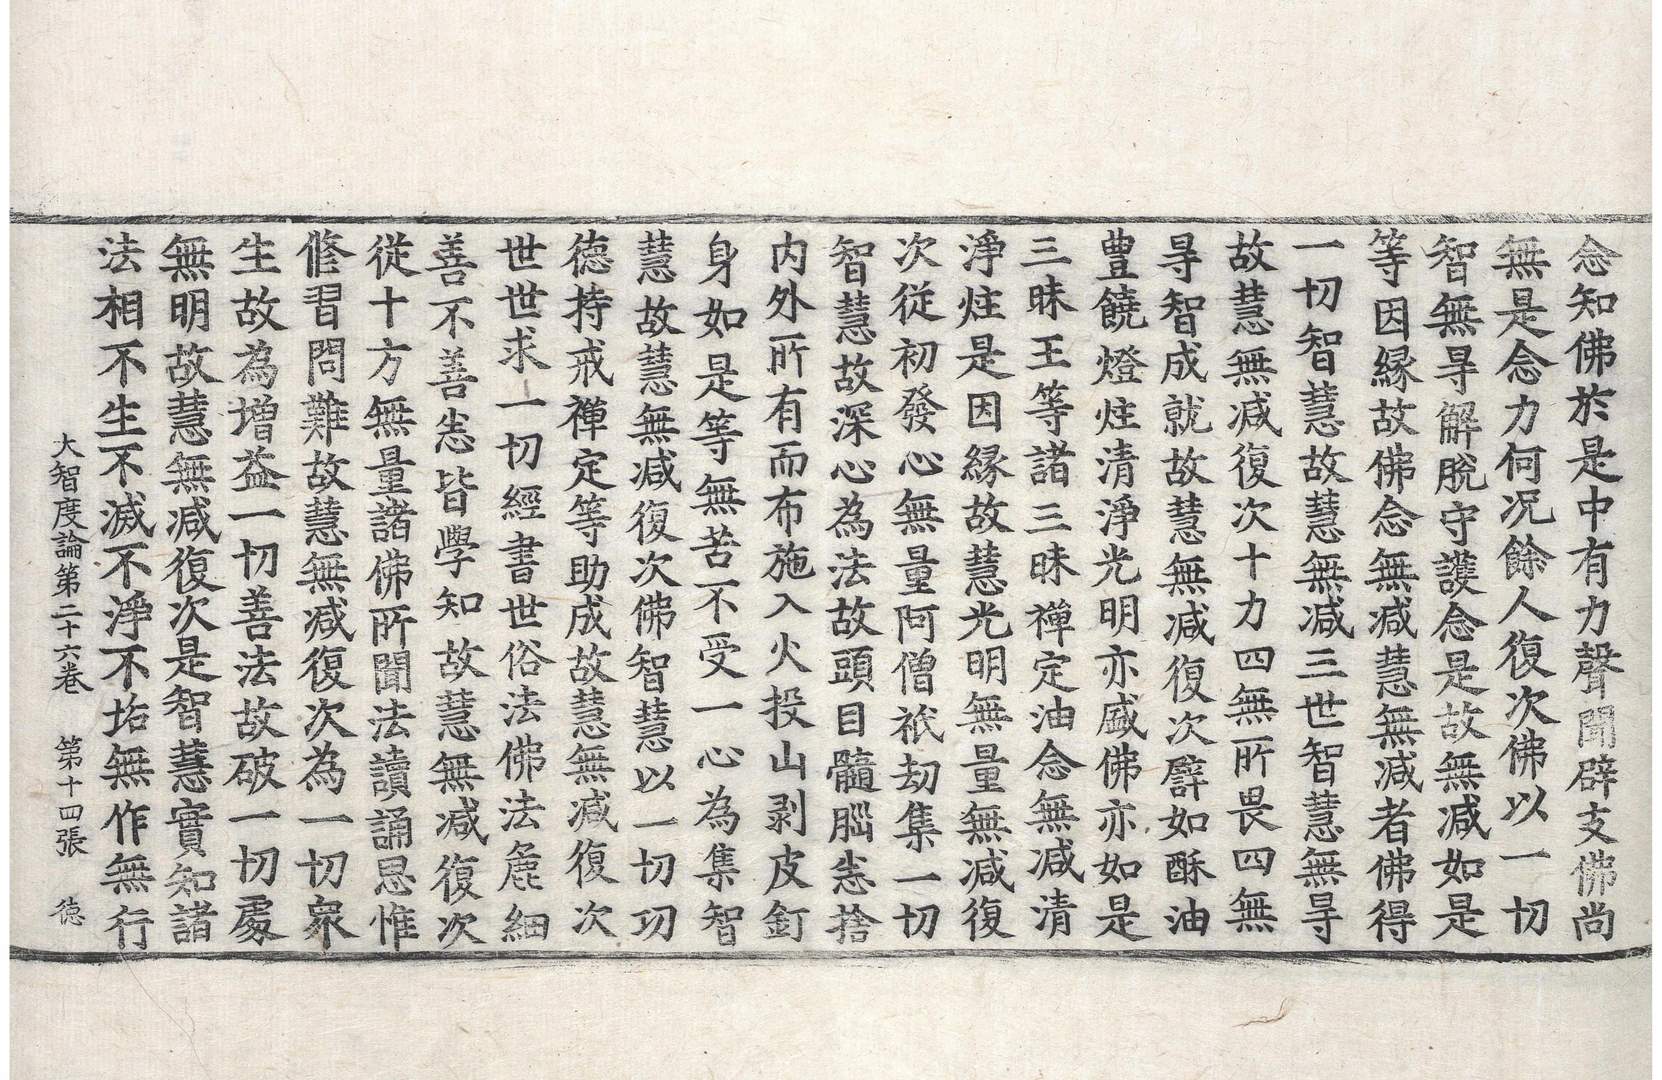 念知佛於是中有力聲聞辟支佛尚
無是念力何況餘人復次佛以一切
智無㝵解脫守護念是故無減如是
等因緣故佛念無減慧無減者佛得
一切智慧故慧無減三世智慧無㝵
故慧無減復次十力四無所畏四無
㝵智成就故慧無減復次譬如酥油
豊饒燈炷清淨光明亦盛佛亦如是
三昧王等諸三昧禪定油念無減清
淨炷是因緣故慧光明無量無減復
次從初發心無量阿僧祇劫集一切
智慧故深心為法故頭目髓腦悉捨
內外所有而布施入火投山剥皮釘
身如是等無苦不受一心為集智
慧故慧無減復次佛智慧以一切功
德持戒禪定等助成故慧無減復次
世世求一切經書世俗法佛法麁細
善不善悉皆學知故慧無減復次
從十方無量諸佛所聞法讀誦思惟
修習問難故慧無減復次為一切眾
生故為增益一切善法故破一切處
無明故慧無減復次是智慧實知諸
法相不生不滅不淨不垢無作無行
大智度論第二十六卷 第十四張 德